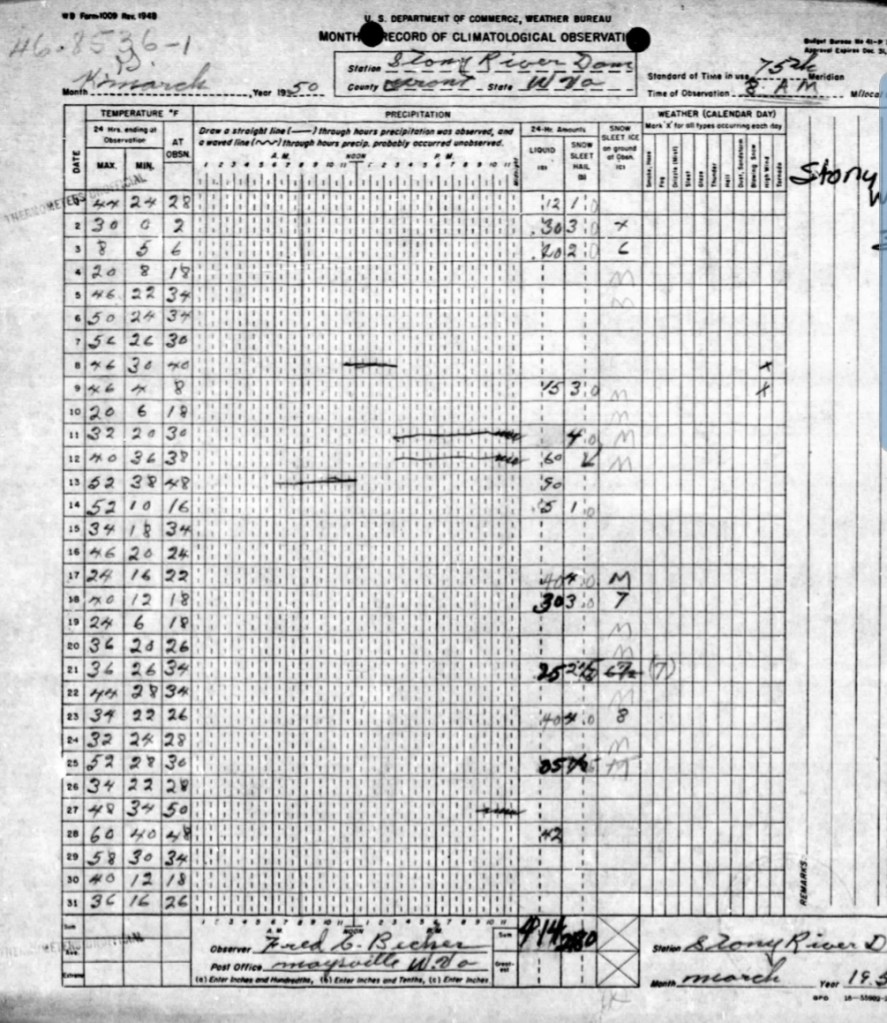 WB Form-1009 Rev. 1948
U. S. DEPARTMENT OF COMMERCE, WEATHER BUREAU
46-8536-1
MONTH RECORD OF CLIMATOLOGICAL OBSERVATI
Station Stony River Dam
County Grant State W Va
Standard of Time in use 75th Meridian
Time of Observation 8 A M
Month march, Year 1950
TEMPERATURE °F
PRECIPITATION
WEATHER (CALENDAR DAY)
24 Hrs. ending at Observation
AT OBSN.
Draw a straight line (——) through hours precipitation was observed, and
a waved line (~~) through hours precip. probably occurred unobserved.
24-Hr. Amounts
SNOW SLEET ICE on ground at Obsn. (c)
Mark "X" for all types occurring each day
DATE MAX. MIN.
A. M. NOON P. M.
LIQUID (a) SNOW SLEET HAIL (b)
Smoke, Haze Fog Drizzle (Mist) Sleet Glaze Thunder Hail Dust, Sandstorm Blowing Snow High Wind Tornado
Stony
44 24 28 .12 1.0
2 30 0 2 .30 3.0
3 8 5 6 .20 2.0
4 20 8 18 M
5 46 22 34 M
6 50 24 34
7 56 26 30
8 46 30 40 X
9 46 4 8 .15 3.0 M X
10 20 6 18 M
11 32 20 30 4.0 M
12 40 36 38 .60 M
13 52 38 48 .50
14 52 10 16 .5 1.0
15 34 18 34
16 46 20 24
17 24 16 22 .40 4.0 M
18 40 12 18 .30 3.0 7
19 24 6 18 M
20 36 20 26 M
21 36 26 34 .25 (7)
22 44 28 34 M
23 34 22 26 .40 4.0 8
24 32 24 28 M
25 52 28 30 .05 M
26 34 22 28
27 48 34 50
28 60 40 48 .42
29 58 30 34
30 40 12 18
31 36 16 26
REMARKS:
Sum
Extreme
A. M. NOON P. M.
Observer Fred C.
Post Office maysville W. Va
(a) Enter Inches and Hundredths, (b) Enter Inches and Tenths, (c) Enter Inches
Sum
Station Stony River D
Month march Year 19.5